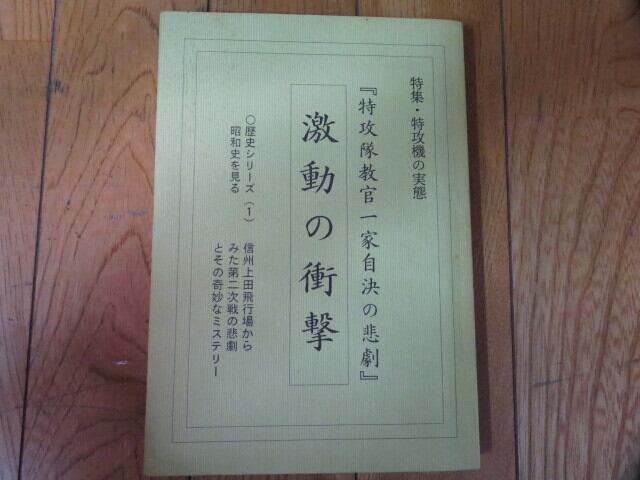 特集・特攻機の実態
『特攻隊教官一家自決の悲劇』
激動の衝撃
○歴史シリーズ(1)
昭和史を見る
信州上田飛行場から
みた第二次戦の悲劇
とその奇妙なミステリー